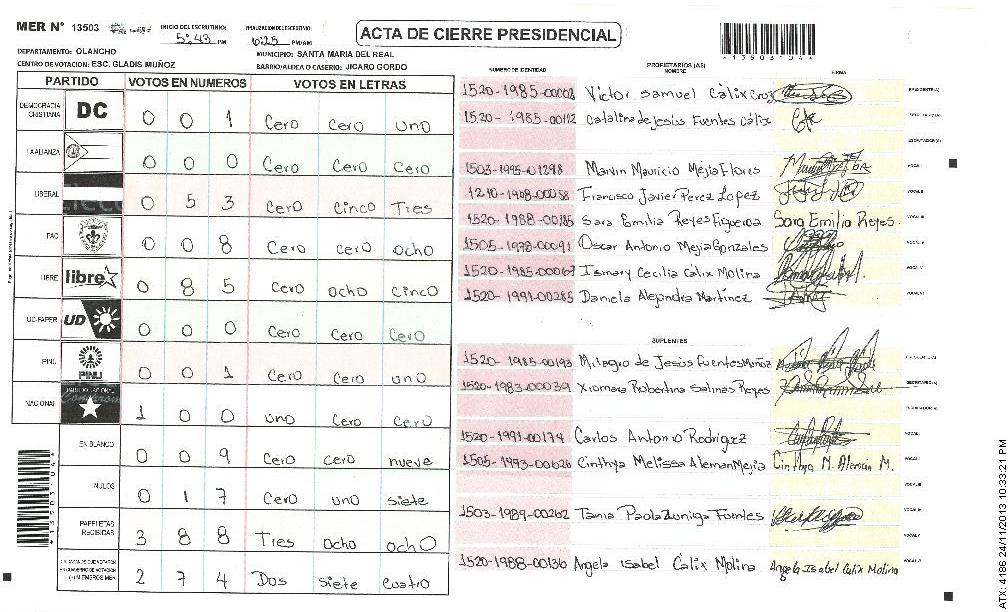 MER N° 13503
INICIO DEL ESCRUTINIO: 5:43 PM
FINALIZACION DEL ESCRUTINIO: 6:25 PM/AM
ACTA DE CIERRE PRESIDENCIAL
*135031041*
DEPARTAMENTO: OLANCHO
MUNICIPIO: SANTA MARIA DEL REAL
CENTRO DE VOTACION: ESC. GLADIS MUÑOZ
BARRIO/ALDEA O CASERIO: JICARO GORDO
PARTIDO VOTOS EN NUMEROS VOTOS EN LETRAS
DEMOCRACIA CRISTIANA DC 0 0 1 Cero Cero uno
LA ALIANZA 0 0 0 Cero Cero Cero
LIBERAL 0 5 3 Cero Cinco Tres
PAC 0 0 8 Cero cero ocho
LIBRE libre 0 8 5 Cero ocho cinco
UD-FAPER UD 0 0 0 Cero Cero Cero
PINU PINU 0 0 1 Cero Cero uno
NACIONAL 1 0 0 uno Cero Cero
EN BLANCO 0 0 9 Cero Cero nueve
NULOS 0 1 7 Cero uno siete
PAPELETAS RECIBIDAS 3 8 8 Tres ocho ocho
2 7 4 Dos siete cuatro
NUMERO DE IDENTIDAD PROPIETARIOS (AS) NOMBRE FIRMA
1520-1985-00003 Victor Samuel Cálix Cruz PRESIDENTE(A)
1520-1985-00112 Catalina de Jesús Fuentes Cálix SECRETARIO(A)
ESCRUTADOR(A)
1503-1995-01298 Marvin Mauricio Mejia Flores VOCAL I
1210-1968-00058 Francisco Javier Perez Lopez VOCAL II
1520-1988-00185 Sara Emilia Reyes Figueroa Sara Emilio Reyes. VOCAL III
1505-1998-00091 Oscar Antonio Mejia Gonzales VOCAL IV
1520-1985-00067 Ismary Cecilia Cálix Molina VOCAL V
1520-1991-00285 Daniela Alejandra Martínez VOCAL VI
SUPLENTES
1520-1985-00193 Milagro de Jesús Fuentes Muñoz PRESIDENTE(A)
1520-1983-00039 Xiomara Robertina Salinas Reyes SECRETARIO(A)
ESCRUTADOR(A)
1520-1991-00174 Carlos Antonio Rodrigez VOCAL I
1505-1993-00626 Cinthya Melissa Aleman Mejia Cinthya M. Alemán M. VOCAL II
VOCAL III
1503-1989-00262 Tania Paola Zuniga Fuentes VOCAL IV
VOCAL V
1520-1988-00136 Angela Isabel Calix Molina Angela Isabel Calix Molina VOCAL VI
ATX: 4186 24/11/2013 10:33:21 PM